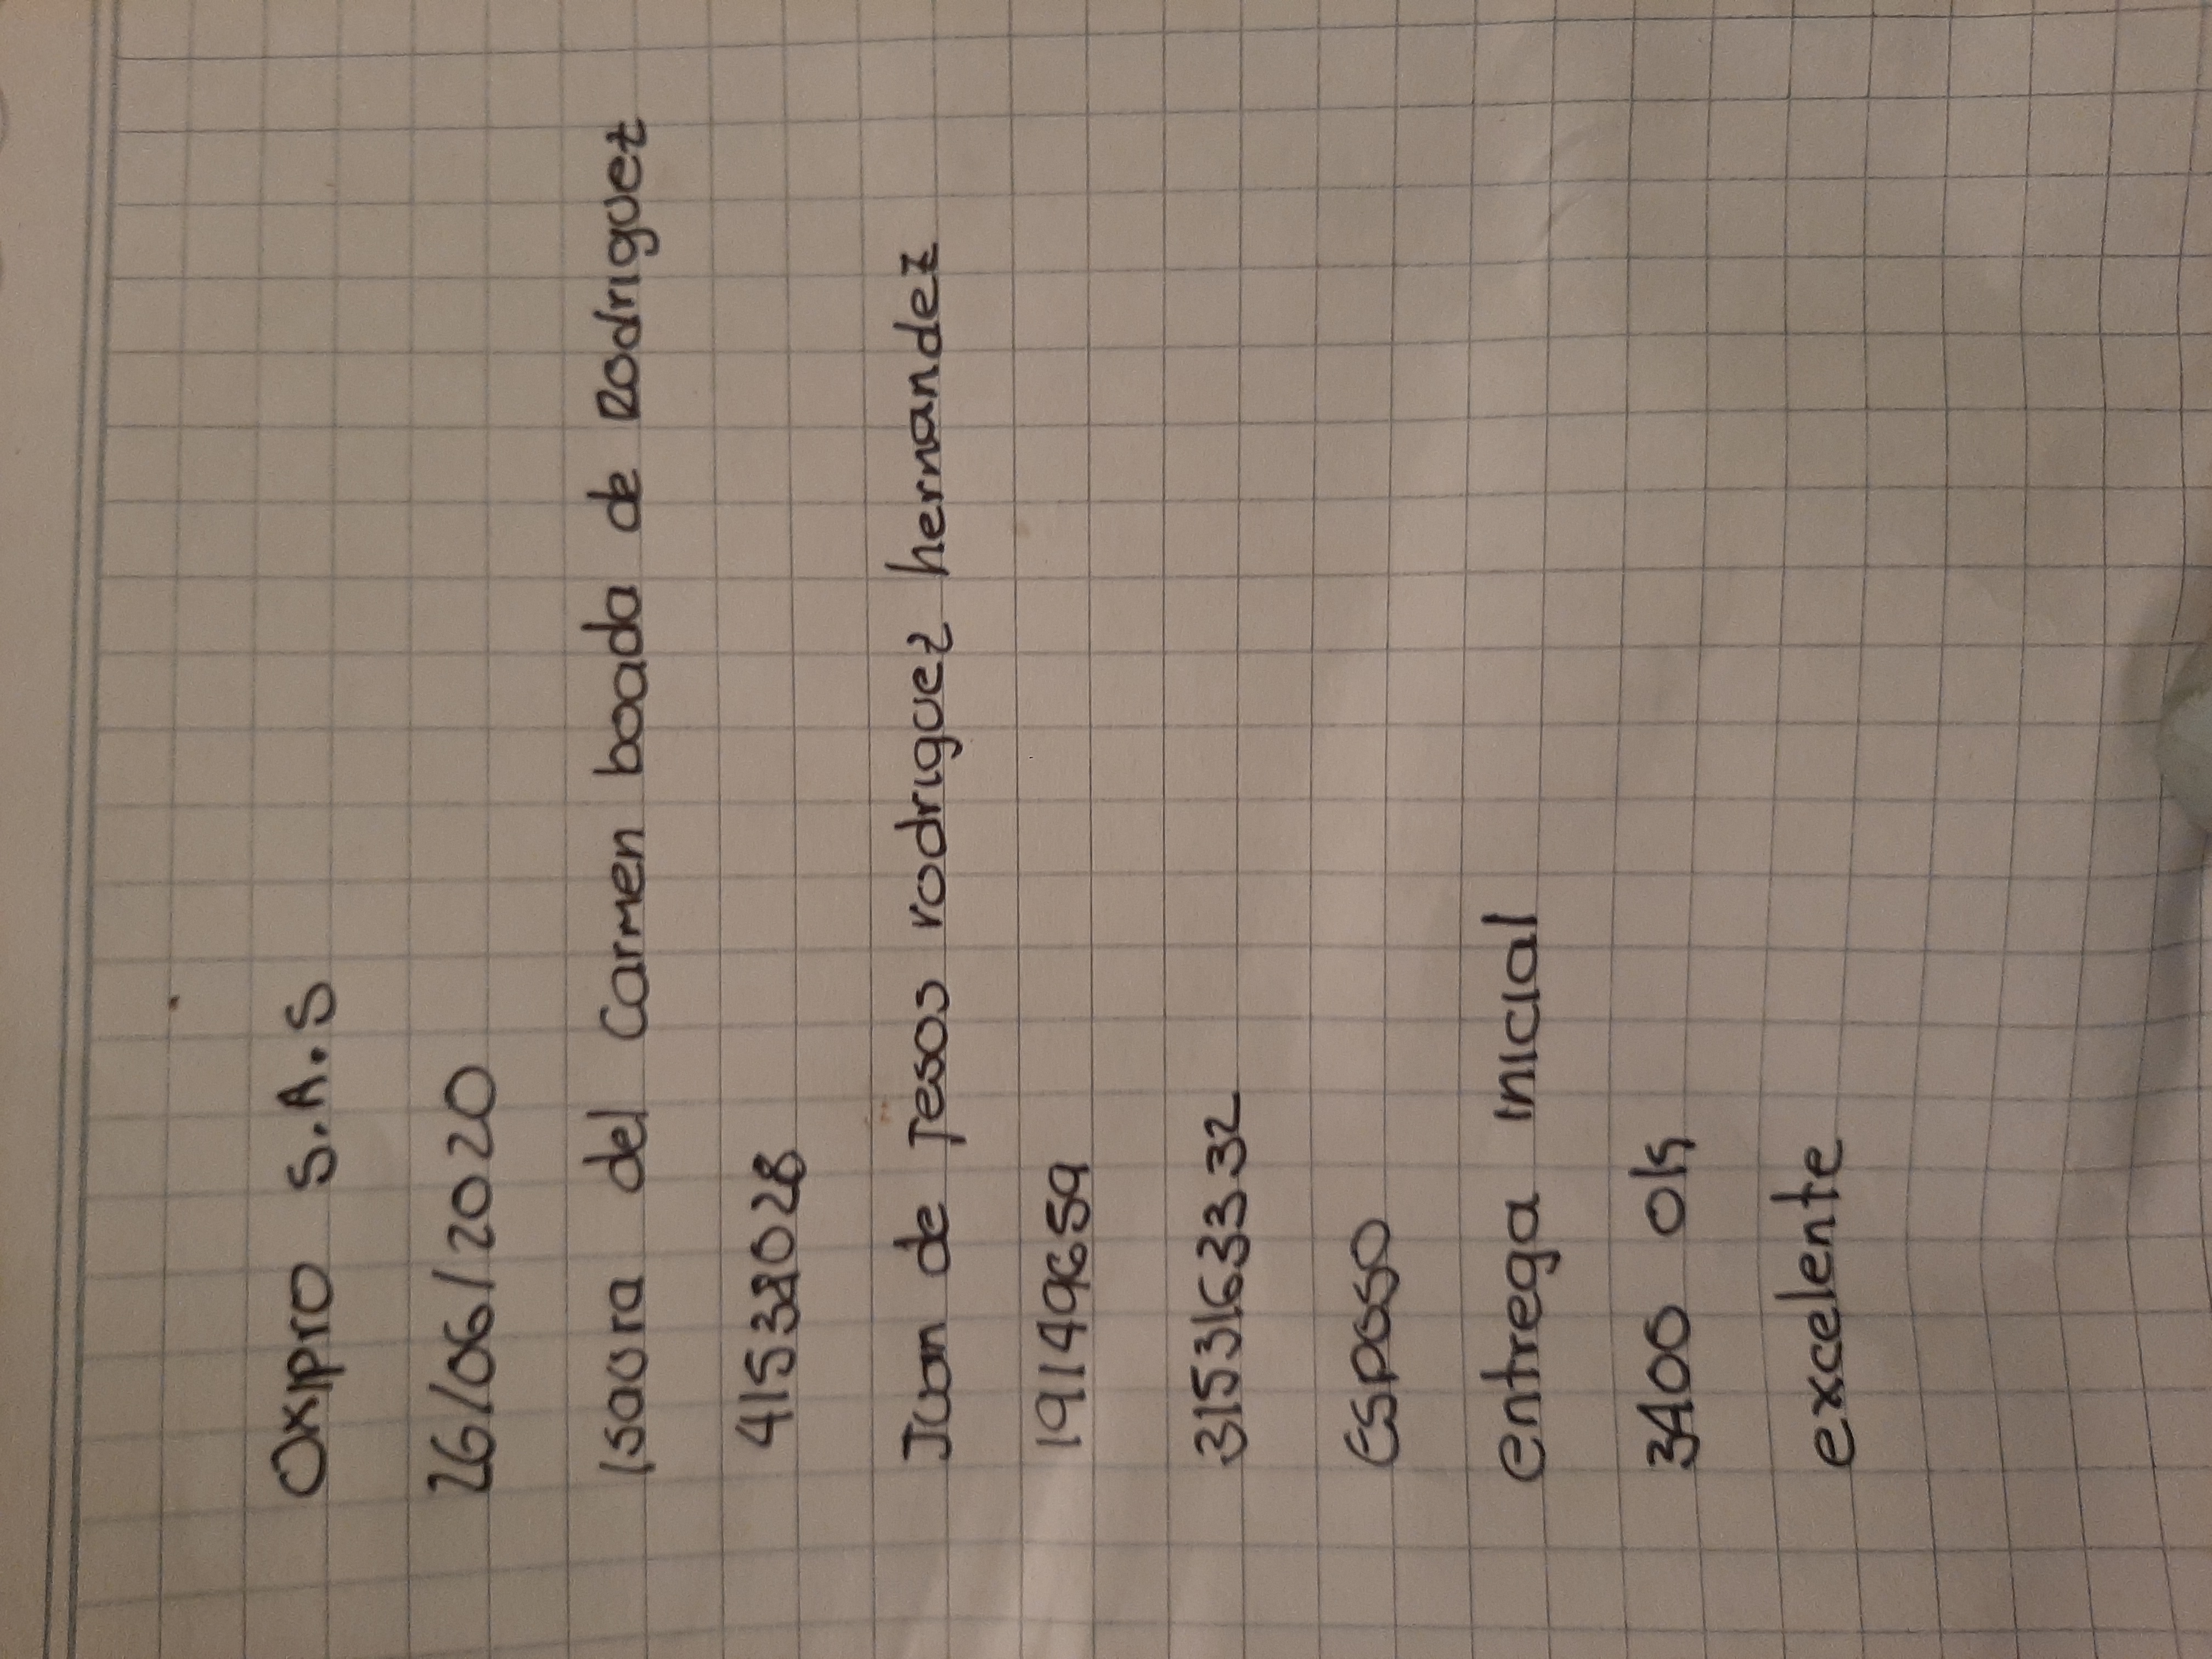 Oxipro S.A.S
26/06/2020
Isaura del Carmen boada de Rodriguez
Juan de Jesus rodriguez hernandez
19149659
3153163332
Esposo
entrega inicial
3400 Ok
excelente